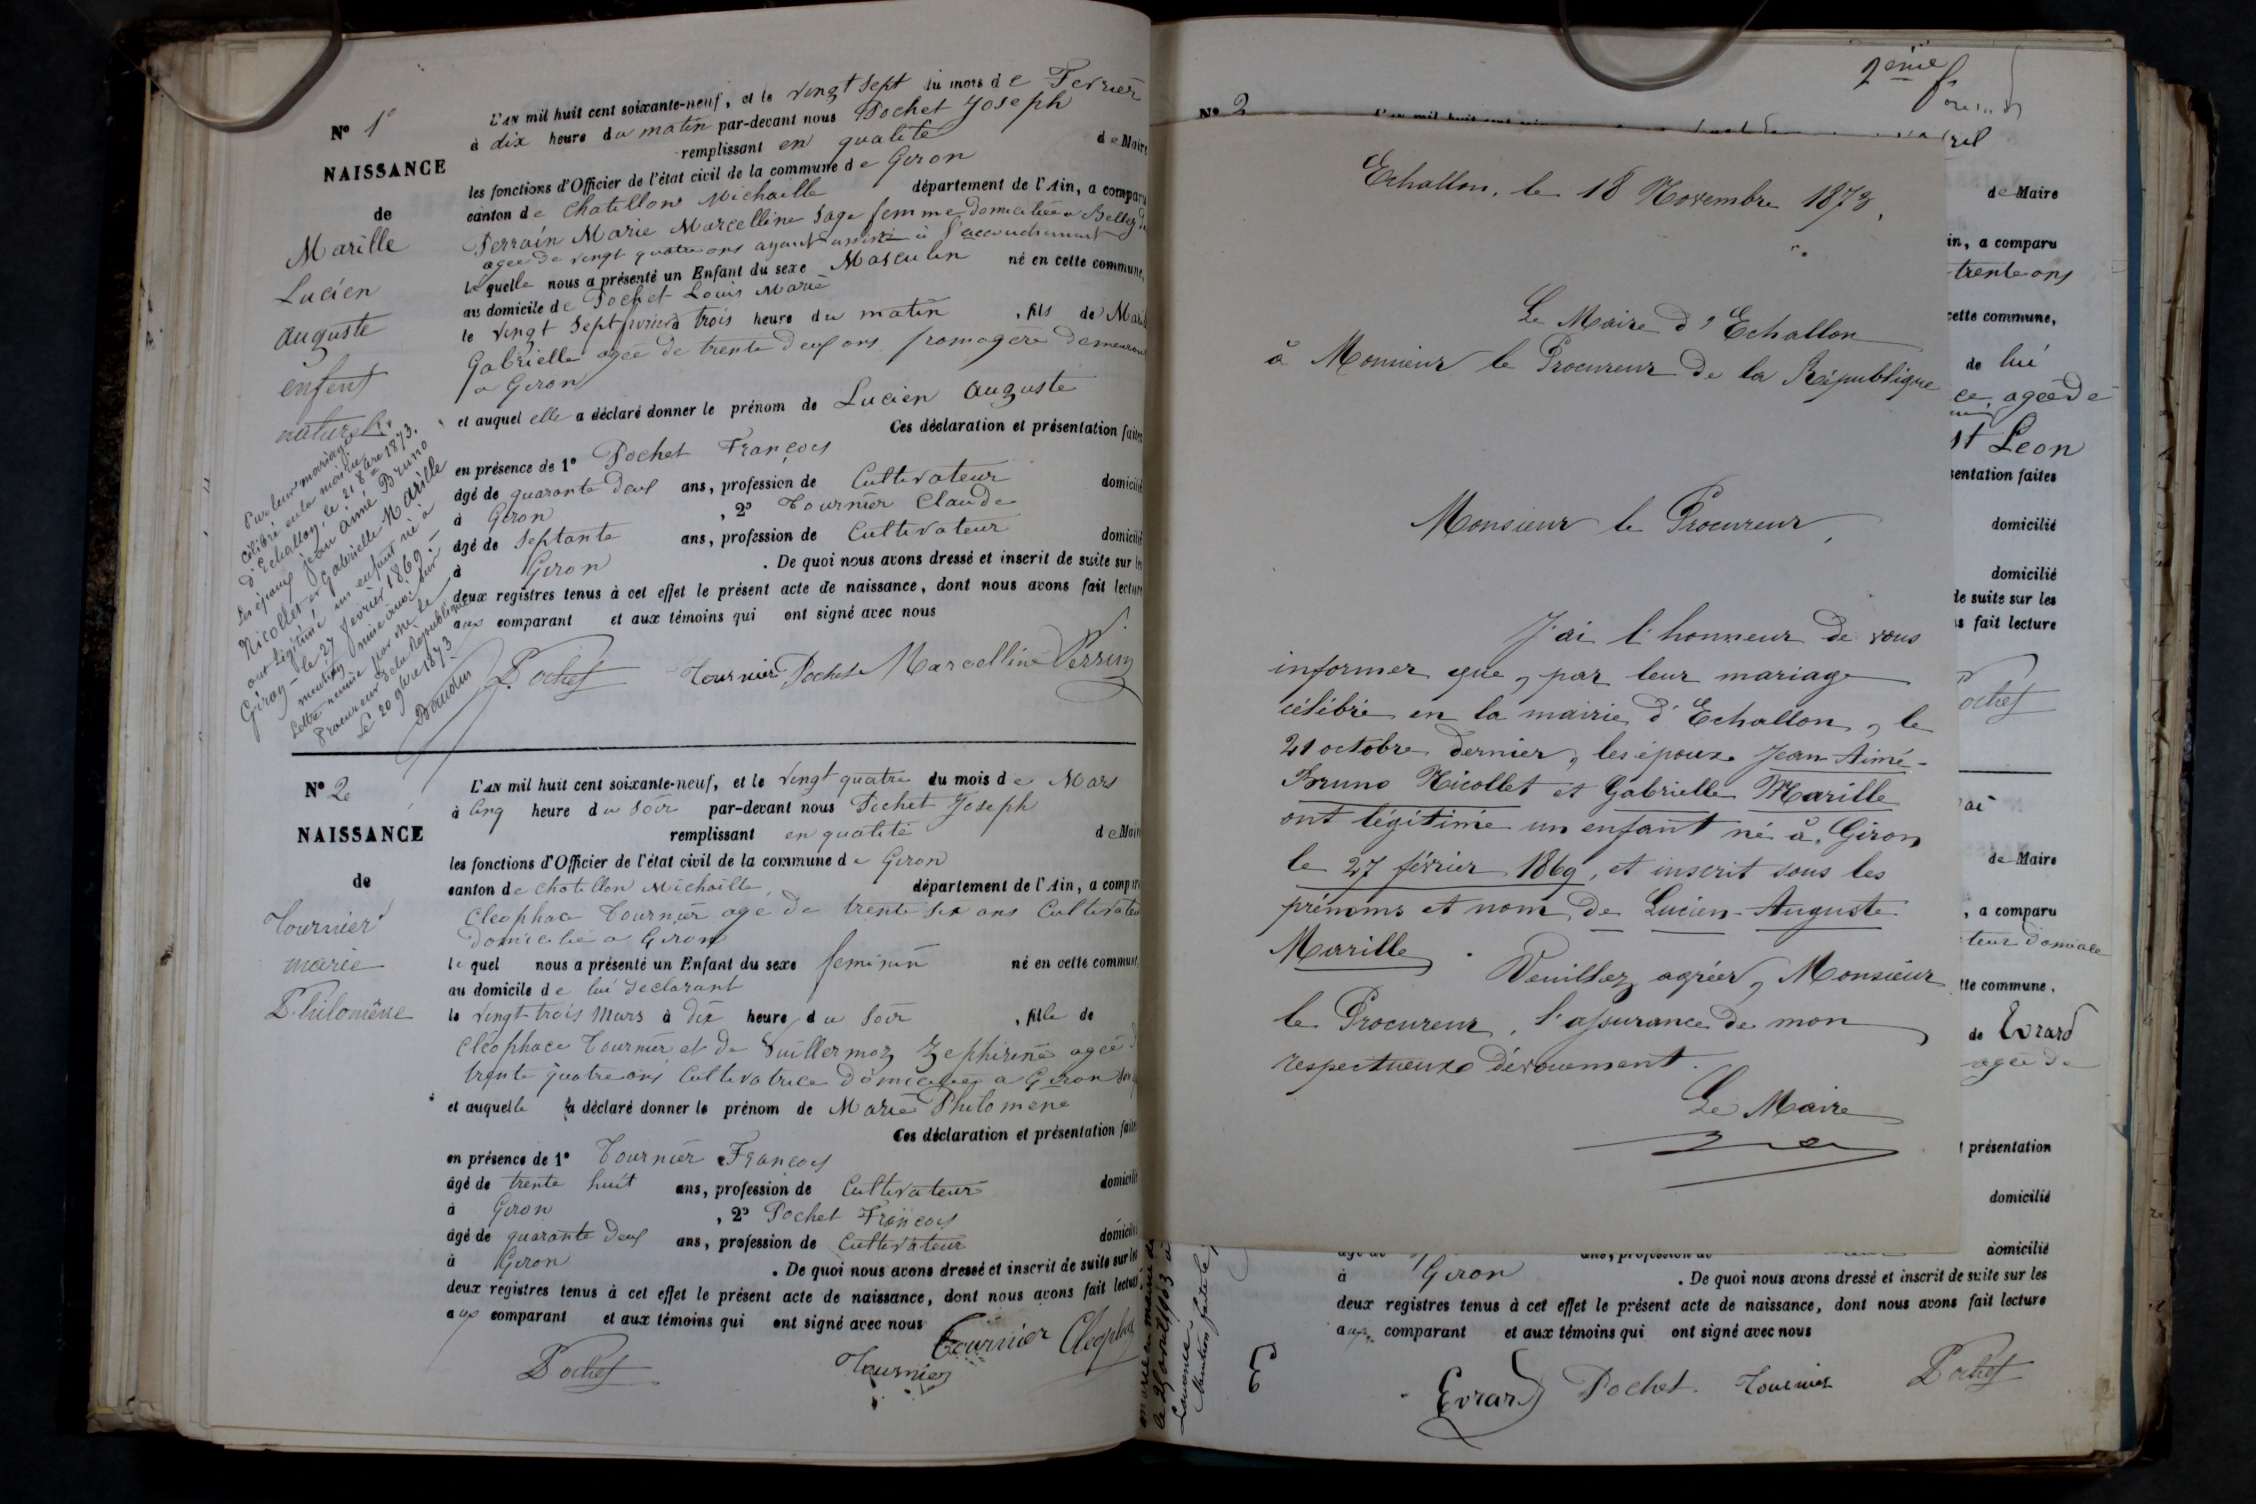 Nº 1º
NAISSANCE
de
Marille
Lucien
auguste
enfent
naturel.
Par leur mariage
célébré en la mairie
d'Echallon, le 21 8bre 1873.
les époux jean aimé Bruno
Nicollet et Gabrielle Marille
ont légitimé un enfant né à
Giron le 27 fevrier 1869
mention mise ainsi sur
lettre remise par mr le
Procureur de la République
le 20 9bre 1873
Baudin
L'AN mil huit cent soixante-neuf, et le vingt sept du mois de Fevrier
à dix heure du matin par-devant nous Pochet Joseph
remplissant en qualité de Maire
les fonctions d'Officier de l'état civil de la commune de Giron
canton de Chatillon Michaille département de l'Ain, a comparu
Perrain Marie Marcelline Sage femme domiciliée a Belley
agee de vingt quatre ans ayant assisté à l'accouchement
laquelle nous a présenté un Enfant du sexe Masculin né en cette commune,
au domicile de Pochet Louis Marie
le vingt Sept fevrier à trois heure du matin , fils de
Gabrielle agée de trente deux ans fromagère demeurant
a Giron
et auquel elle a déclaré donner le prénom de Lucien auguste
Ces déclaration et présentation faites
en présence de 1º Pochet François
âgé de quarante deux ans, profession de Cultivateur domicilié
à Giron , 2º Tournier Claude
âgé de Septante ans, profession de Cultivateur domicilié
à Giron . De quoi nous avons dressé et inscrit de suite sur les
deux registres tenus à cet effet le présent acte de naissance, dont nous avons fait lecture
aux comparant et aux témoins qui ont signé avec nous
Pochet Tournier Pochet Marcelline Perrin
Nº 2e
NAISSANCE
de
Tournier
marie
Philomène
L'AN mil huit cent soixante-neuf, et le vingt quatre du mois de Mars
à cinq heure du soir par-devant nous Pochet Joseph
remplissant en qualité de Maire
les fonctions d'Officier de l'état civil de la commune de Giron
canton de chatillon Michaille, département de l'Ain, a comparu
Cleophace Tournier age de trente six ans Cultivateur
Domicilié a Giron
lequel nous a présenté un Enfant du sexe feminin né en cette commune,
au domicile de lui declarant
le vingt trois Mars à dix heure du soir , fille de
Cleophace Tournier et de Vuillermoz Zephirine agee
trente quatre ans Cultivatrice Domiciliee a Giron
et auquelle a déclaré donner le prénom de Marie Philomene
Ces déclaration et présentation faites
en présence de 1º Tournier François
âgé de trente huit ans, profession de Cultivateur domicilié
à Giron , 2º Pochet François
âgé de quarante deux ans, profession de Cultivateur domicilié
à Giron . De quoi nous avons dressé et inscrit de suite sur les
deux registres tenus à cet effet le présent acte de naissance, dont nous avons fait lecture
aux comparant et aux témoins qui ont signé avec nous
Tournier Cleophace
Pochet Tournier
2eme
Nº 2
Echallon, le 18 Novembre 1873,
Le Maire d'Echallon
à Monsieur le Procureur de la République
Monsieur le Procureur,
J'ai l'honneur de vous
informer que, par leur mariage
célébré en la mairie d'Echallon, le
21 octobre dernier, les époux Jean-Aimé-
Bruno Nicollet et Gabrielle Marille
ont légitimé un enfant né à Giron
le 27 février 1869, et inscrit sous les
prénoms et nom de Lucien-Auguste
Marille.
Veuillez agréer, Monsieur
le Procureur, l'assurance de mon
respectueux dévouement.
Le Maire
de Maire
in, a comparu
trente ans
cette commune,
de lui
ce agée de
st Leon
sentation faites
domicilié
domicilié
de suite sur les
s fait lecture
Pochet
de Maire
, a comparu
teur
tte commune,
de Evrard
agée de
présentation
domicilié
domicilié
à Giron . De quoi nous avons dressé et inscrit de suite sur les
deux registres tenus à cet effet le présent acte de naissance, dont nous avons fait lecture
aux comparant et aux témoins qui ont signé avec nous
Evrard Pochet Tournier Pochet